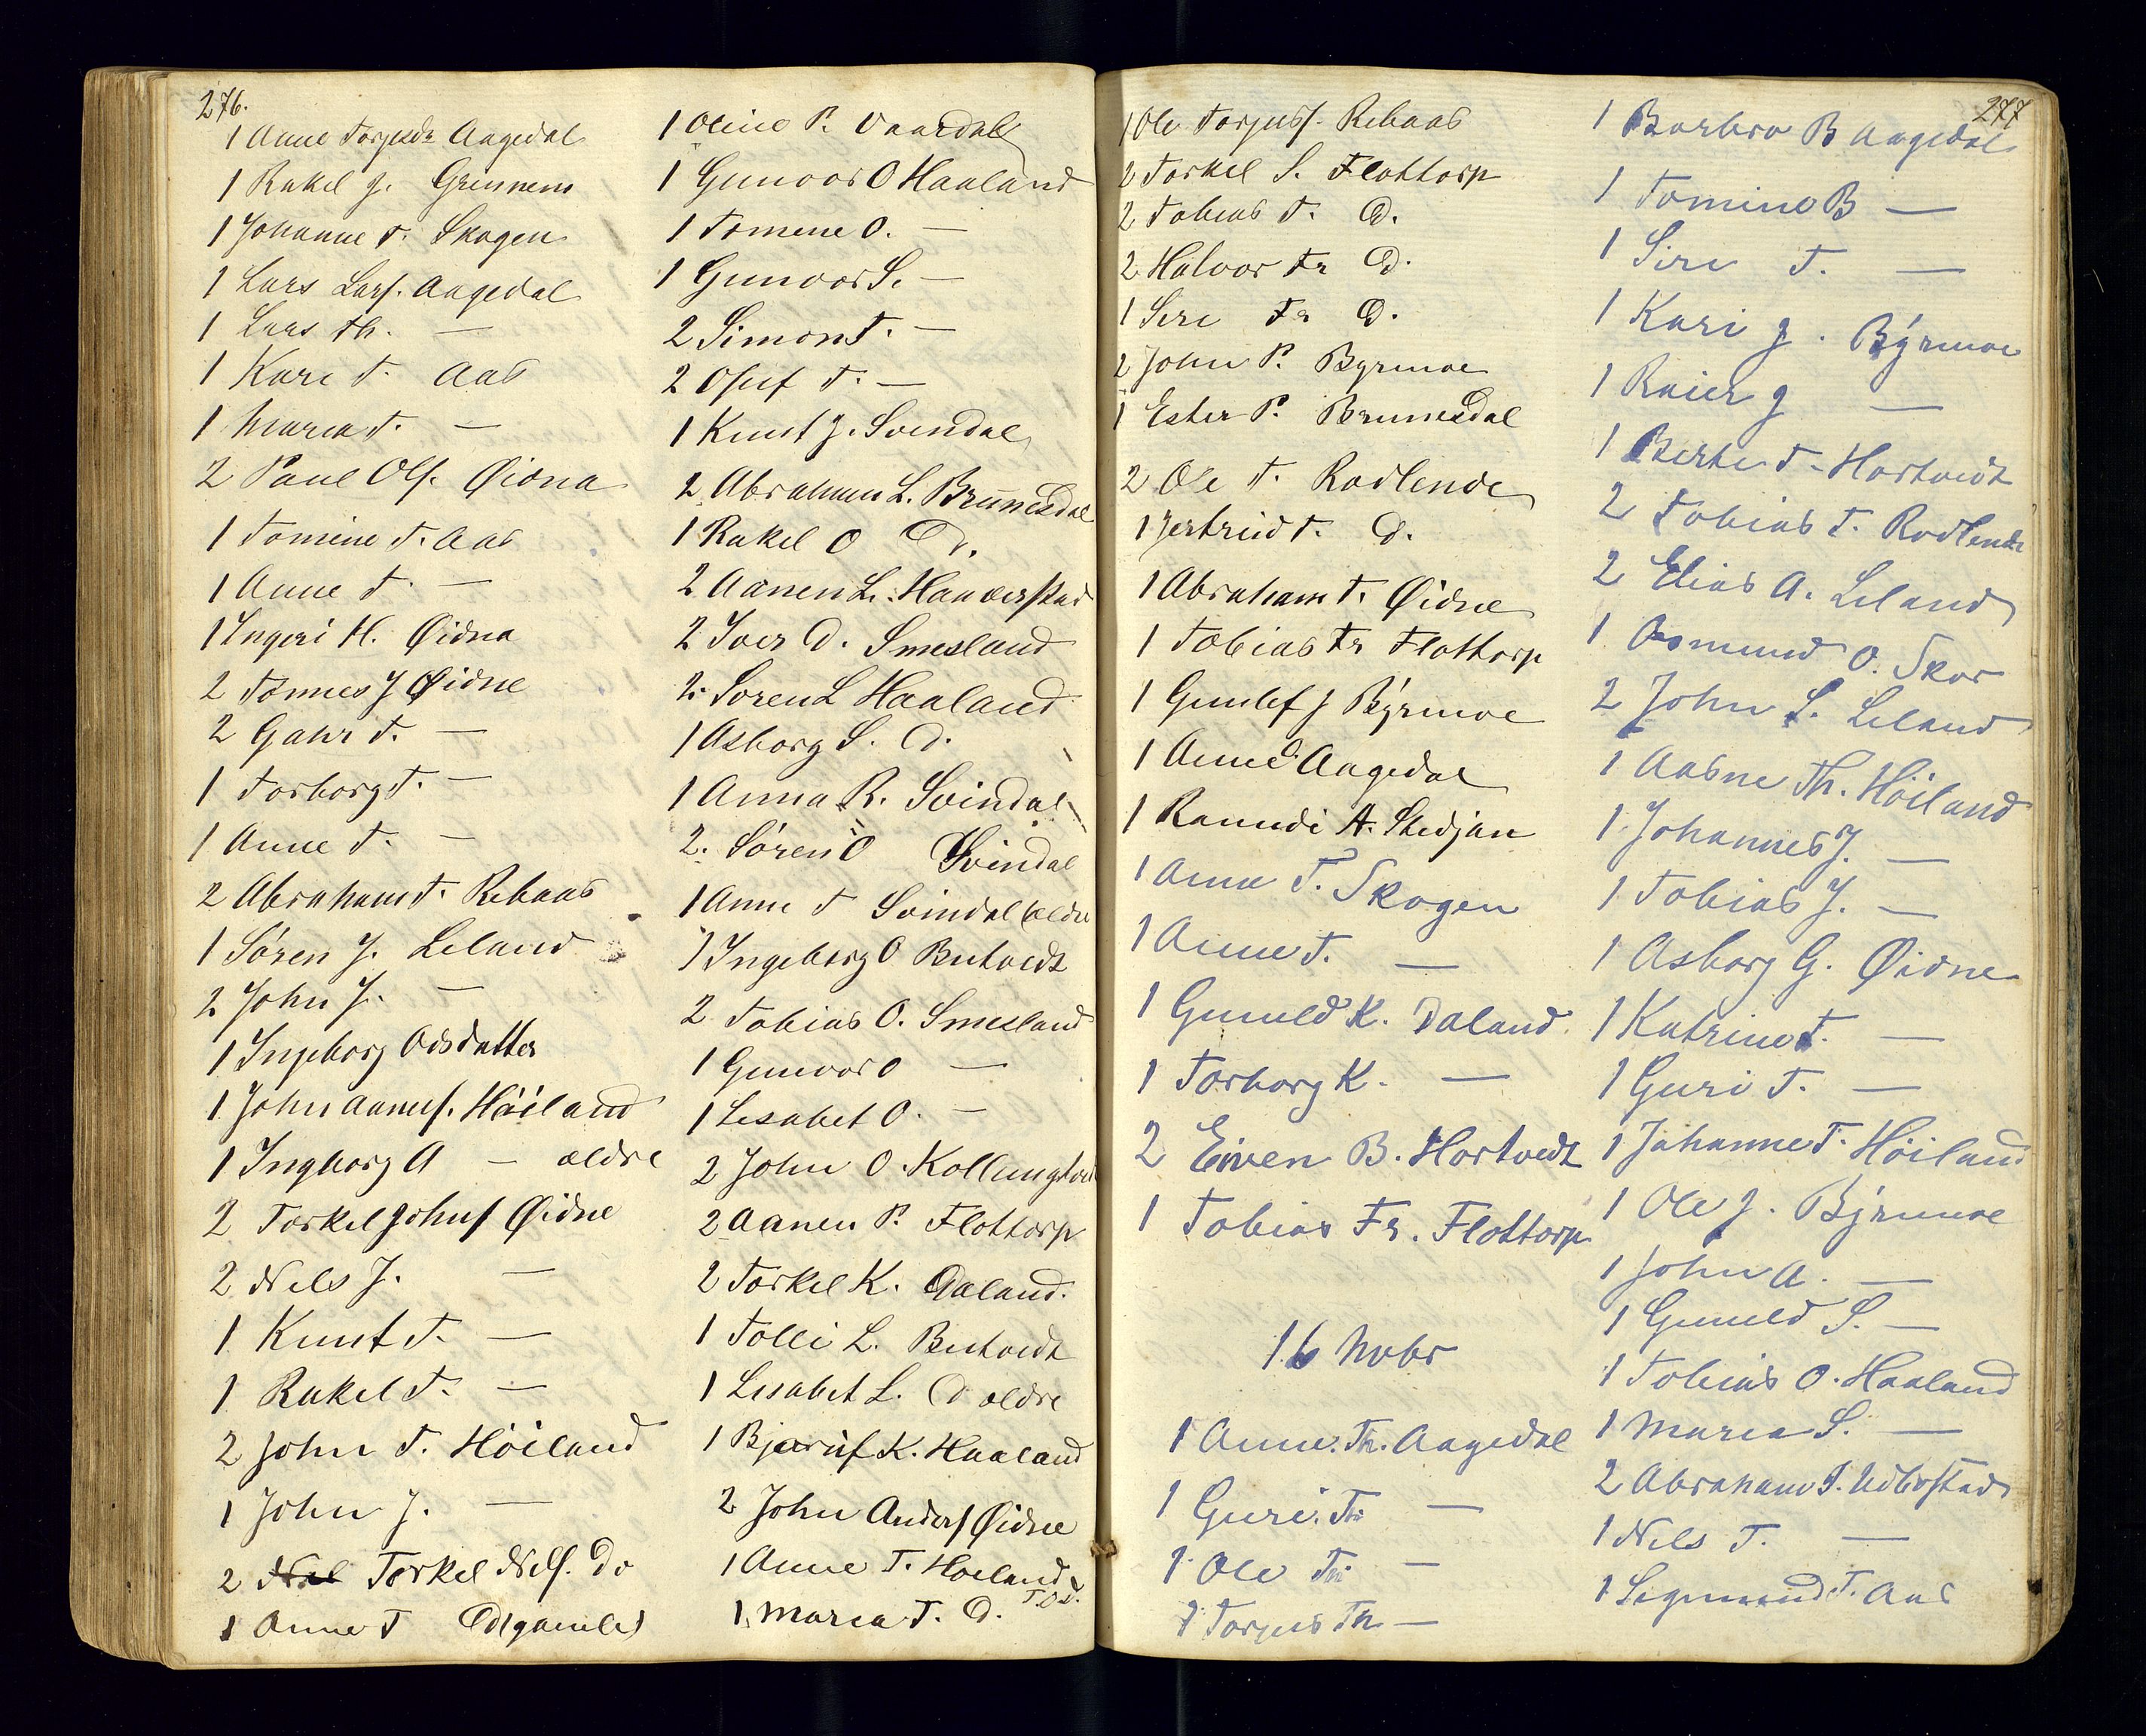 276.
1 Anne Torgusdr Aagedal
1 Rakel J. Grunnem
1 Johanne T. Skogen
1 Lars Larss. Aagedal
1 Lars Th. —
1 Kari T. Aas
1 Maria T. —
2 Paul Ols. Øidna
1 Tomine T. Aas
1 Anne T. —
1 Ingeri H. Øidna
2 Tønnes J Øidne
2 Gahr T. —
1 Torborg T. —
1 Anne T. —
2 Abraham T. Rebaas
1 Sören J. Leland
2 John J. —
1 Ingeborg Odsdatter
1 John Aanens. Höiland
1 Ingborg A — ældre
2 Torkel Johns Øidne
2 Nels J. —
1 Knut T. —
1 Rakel T. —
2 John T. Höiland
1 John J. —
2 Torkel Nels. Do
1 Anne T D (gamle)
1 Oline P. Vaardal
1 Gunvor O Haaland
1 Tomene O. —
1 Gunvor S. —
2 Simon T. —
2 Osuf T. —
1 Knut J. Svendal
2 Abraham L. Brunesdal
1 Rakel O D.
2 Aanen L. Haaverstad
2 Iver D. Smesland
2 Soren L Haaland
1 Asborg S. D.
1 Anna R. Svindal
2. Søren O Svindal
1 Anne T Svindal (ældre
1 Ingeborg O Butvedt
2 Tobias O. Smesland
1 Gunvor O —
1 Lisabet O. —
2 John O. Kollungtveit
2 Aanen P. Flottorp
2 Torkel K. Daland.
1 Tolli L. Butvedt
1 Lisabet L. D ældre
1 Bjaruf K. Haaland
2 John Anders Øidne
1 Anne T. Hoeland
T.O.D.
1 Maria T. D.
1 Ole Torjuss. Rebaas
2 Torkel S. Flottorp
2 Tobias T. D.
2 Halvor Tr D.
1 Seri Tr D.
2 John P. Byrmoe
1 Ester P. Brunesdal
2 Ole T. Rodlende
1 Jertrud T. D.
1 Abraham T. Øidne
1 Tobias Tr Flottorp
1 Gunlef J Byrmoe
1 Anne Aagedal
1 Ranndi A. Stedjan
1 Anne T. Skogen
1 Anne T. —
1 Gunuld K. Daland.
1 Torborg K. —
2 Eiven B. Hortvedt
1 Tobias Tr. Flottorp
16 Nobr
1 Anne. Th. Aagedal
1 Guri. Th —
1 Ole Th —
1 Torjus Th —
277
1 Barbro B Aagedal
1 Tomine B —
1 Siri T. —
1 Kari J. Byrmoe
1 Reier J —
1 Berte T. Hortvedt
2 Tobias T. Rodlende
2 Elias A. Leland
1 Osmund O. Skor
2 John S. Leland
1 Aasne Th. Höiland
1 Johannes J. —
1 Tobias J. —
1 Asborg G. Øidne
1 Katrine T. —
1 Guri T. —
1 Johanne T. Höiland
1 Ole J. Byrmoe
1 John A. —
1 Gunuld S. —
1 Tobias O. Haaland
1 Maria S. —
2 Abraham T. Udbostad
1 Nils T. —
1 Segmund T. Aas